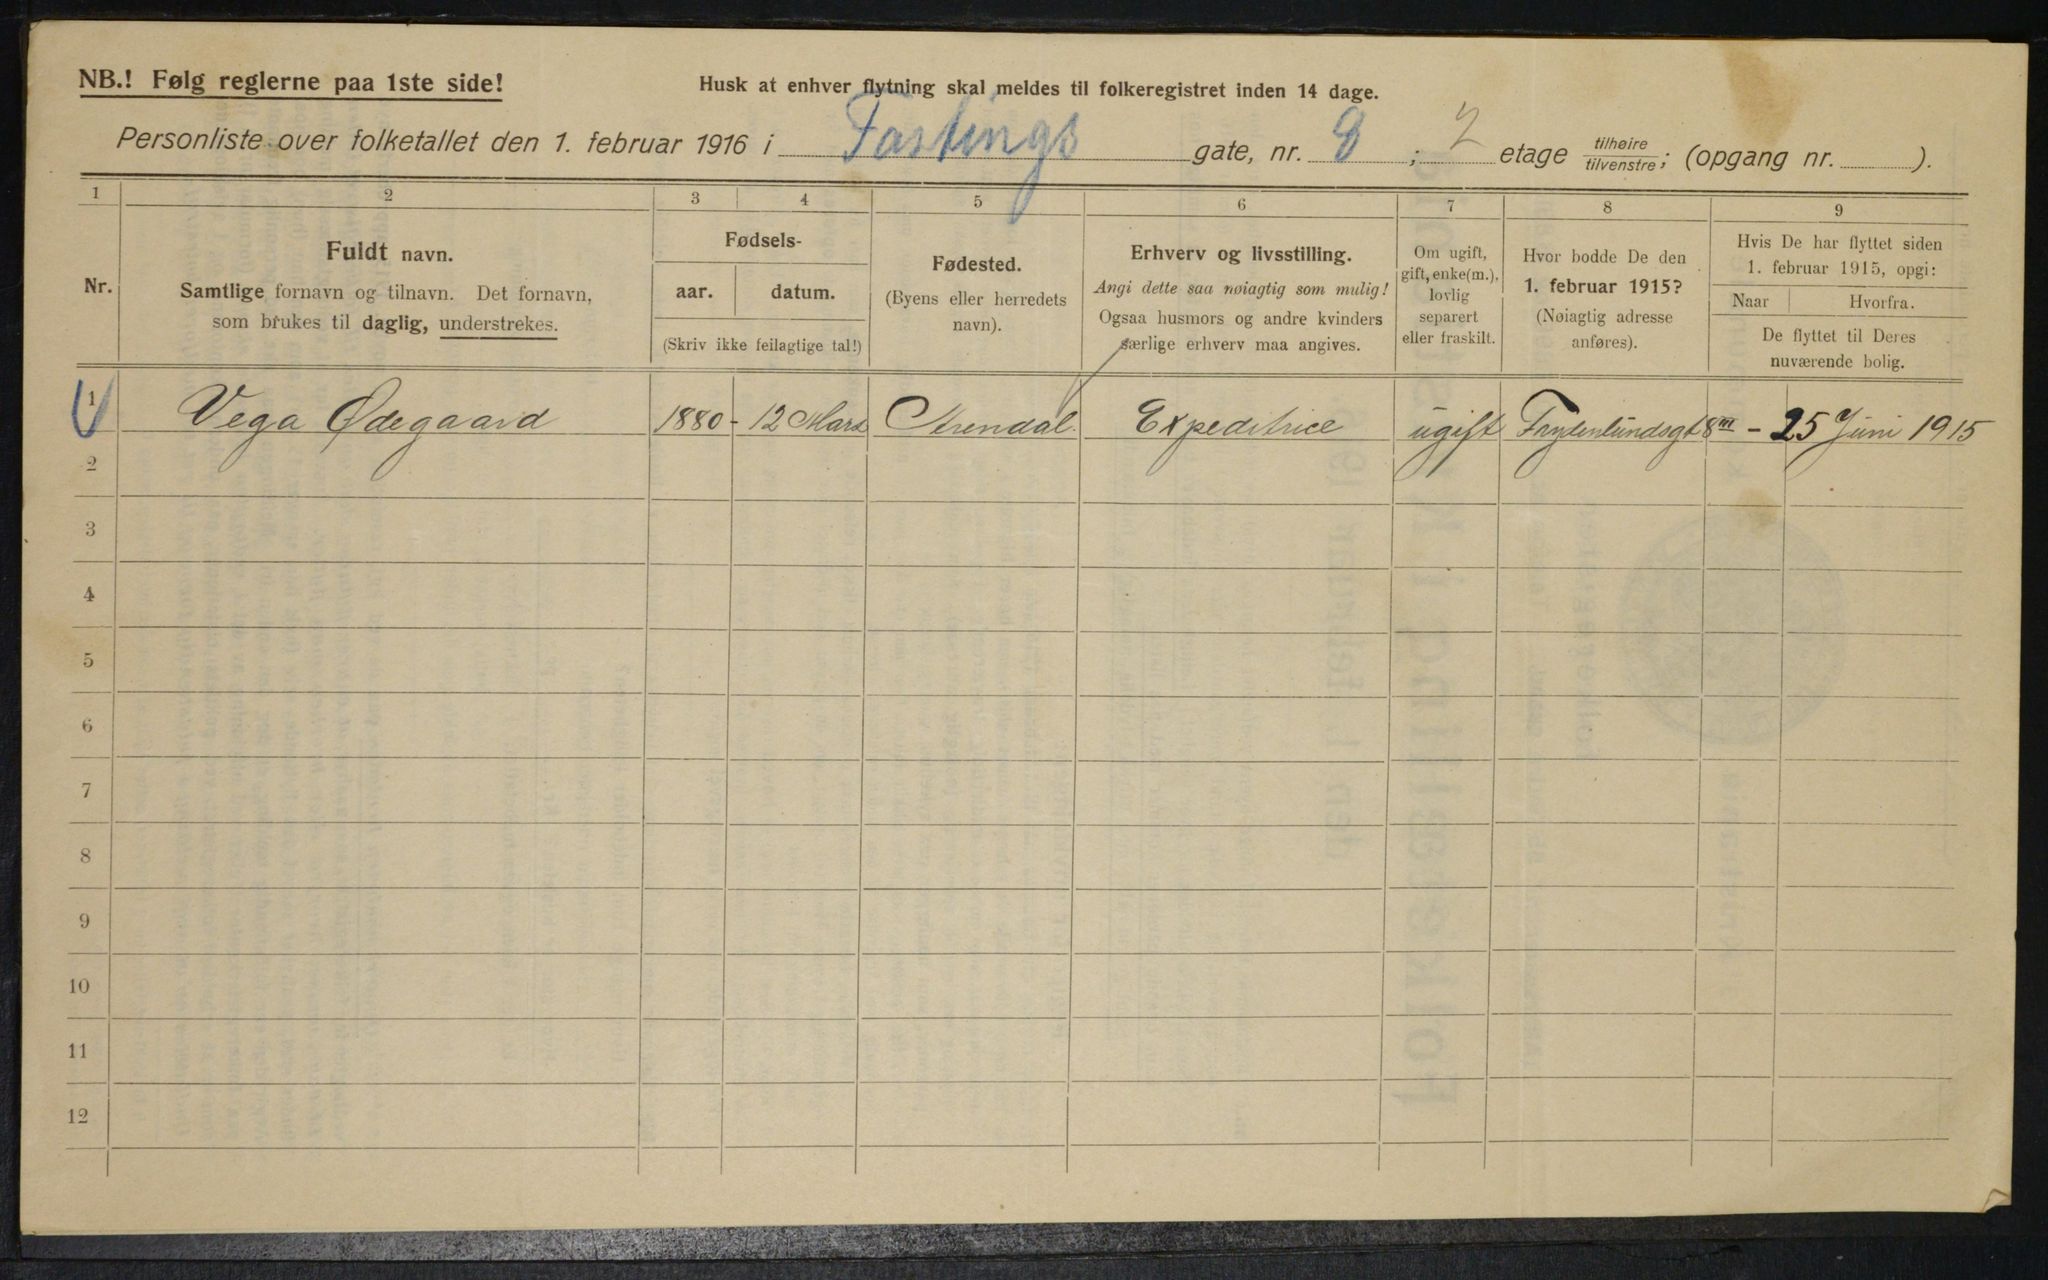 NB.! Følg reglerne paa 1ste side!
Husk at enhver flytning skal meldes til folkeregistret inden 14 dage.
Personliste over folketallet den 1. februar 1916 i Fastings gate, nr. 8 ; 2 etage tilhøire/tilvenstre; (opgang nr. ).
1 2 3 4 5 6 7 8 9
Nr.
Fuldt navn.
Samtlige fornavn og tilnavn. Det fornavn,
som brukes til daglig, understrekes.
Fødsels-
aar. datum.
(Skriv ikke feilagtige tal!)
Fødested.
(Byens eller herredets
navn).
Erhverv og livsstilling.
Angi dette saa nøiagtig som mulig!
Ogsaa husmors og andre kvinders
særlige erhverv maa angives.
Om ugift,
gift, enke(m.),
lovlig
separert
eller fraskilt.
Hvor bodde De den
1. februar 1915?
(Nøiagtig adresse
anføres).
Hvis De har flyttet siden
1. februar 1915, opgi:
Naar Hvorfra.
De flyttet til Deres
nuværende bolig.
1 Vega Ødegaard 1880 - 12 Mars Arendal. Expeditrice ugift Frydenlundsgt 8 m - 25 Juni 1915
2
3
4
5
6
7
8
9
10
11
12